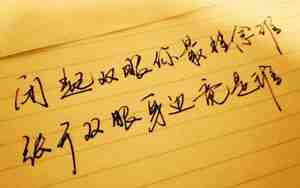 闭起双眼你最挂念谁
眼开双眼身边竟是谁